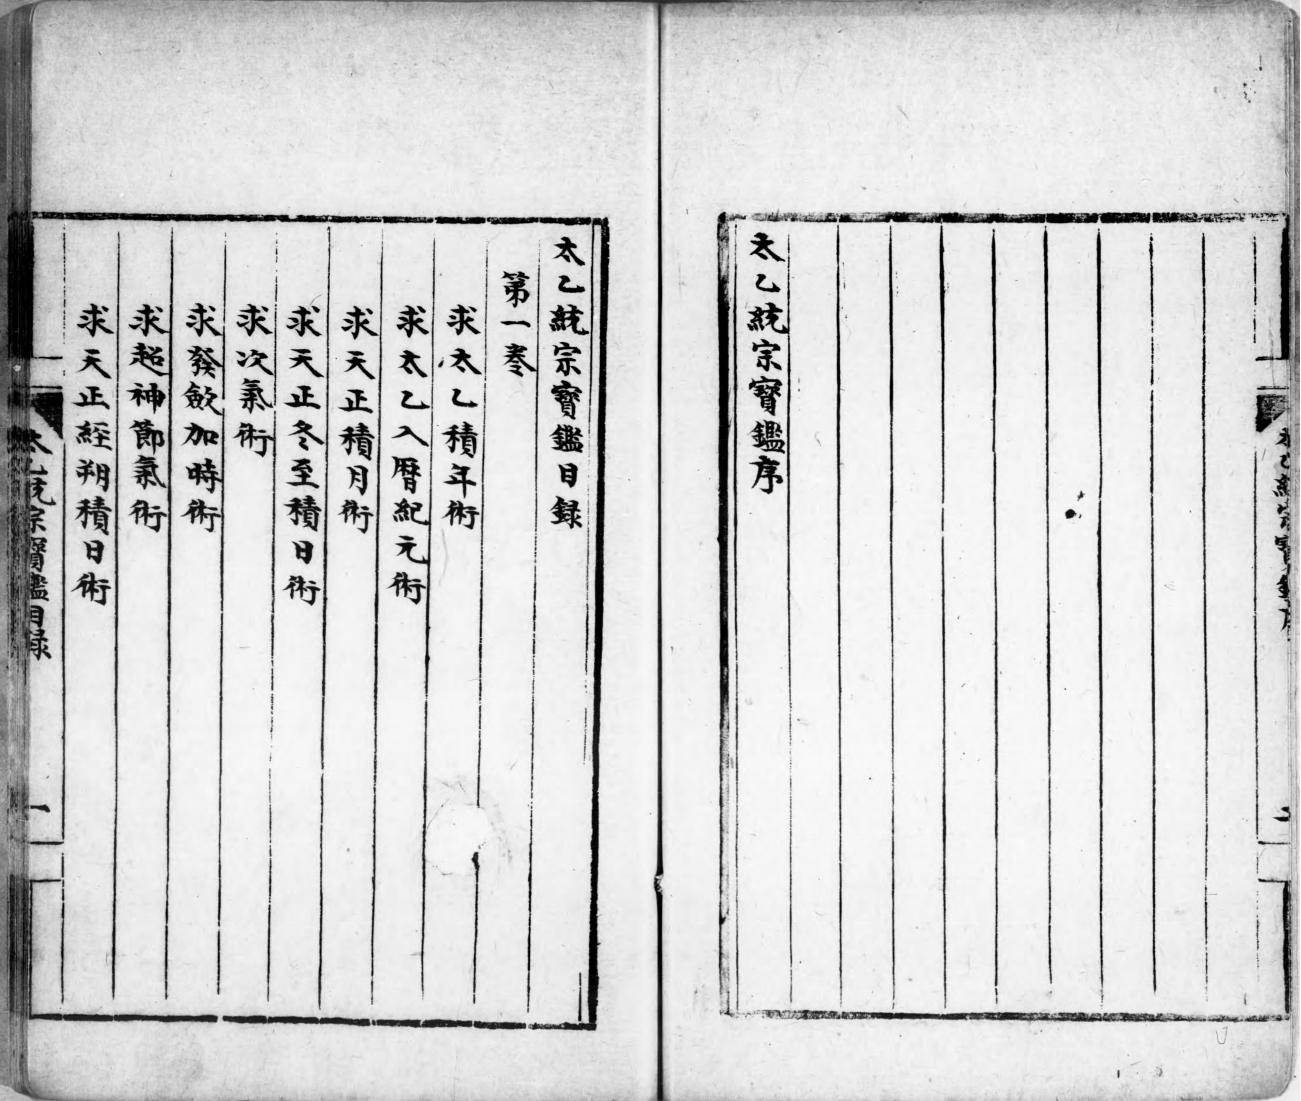 太乙統宗寶鑑序
太乙統宗寶鑑序
二
太乙統宗寶鑑目録
第一卷
求太乙積年術
求太乙入曆紀元術
求天正積月術
求天正冬至積日術
求次氣術
求發斂加時術
求超神節氣術
求天正經朔積日術
太乙統宗寶鑑目録
一